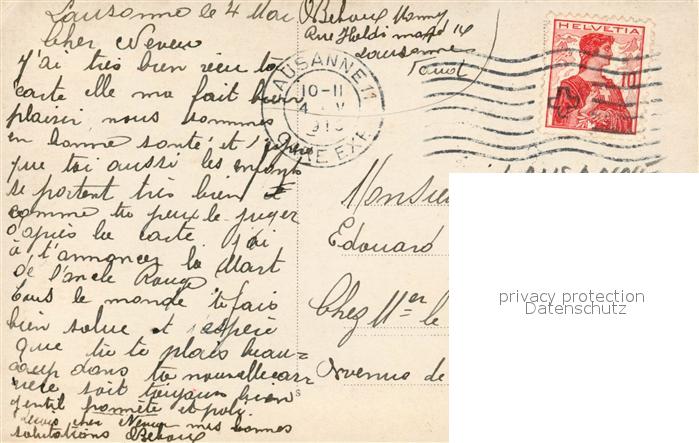 Lausanne le 4 Mai
Cher Neveu
J'ai très bien reçu ta
carte elle ma fait bien
plaisir nous sommes
en bonne santé et j'espère
que toi aussi les enfants
se portent très bien et
comme tu peux le juger
d'après la carte j'ai
à t'annoncer la Mort
de l'oncle Rouge
Tous le monde te fais
bien salue et j'espère
que tu te plais beau=
coup dans ta nouvelle car=
rière soit toujours bien
gentil honnête et poly.
cher Neveu mes bonnes
salutations Behoux
Behoux Henry
Rue
Lausanne
Vaud
LAUSANNE 11
10-11
4 V
EXP.
HELVETIA
10
Monsieu
Edouard
Chez Mr le
Avenus de
privacy protection
Datenschutz